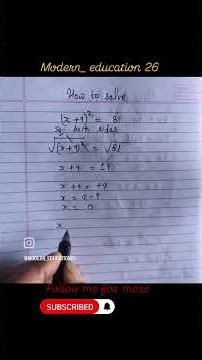 Modern_ education 26
How to solve
(x+9)² = 81
Sq. both sides
√(x+9)² = √81
x + 9 = ±9
x + 9 = +9
x = 9-9
x = 0
x
@MODERN_EDUCATION26
Follow me for more
SUBSCRIBED